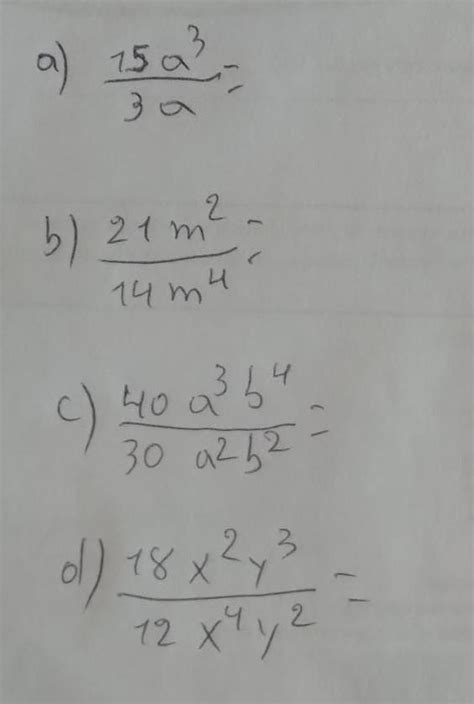 a) 15a³/3a =
b) 21m²/14m⁴ =
c) 40 a³b⁴/30 a²b² =
d) 18x²y³/12x⁴y² =